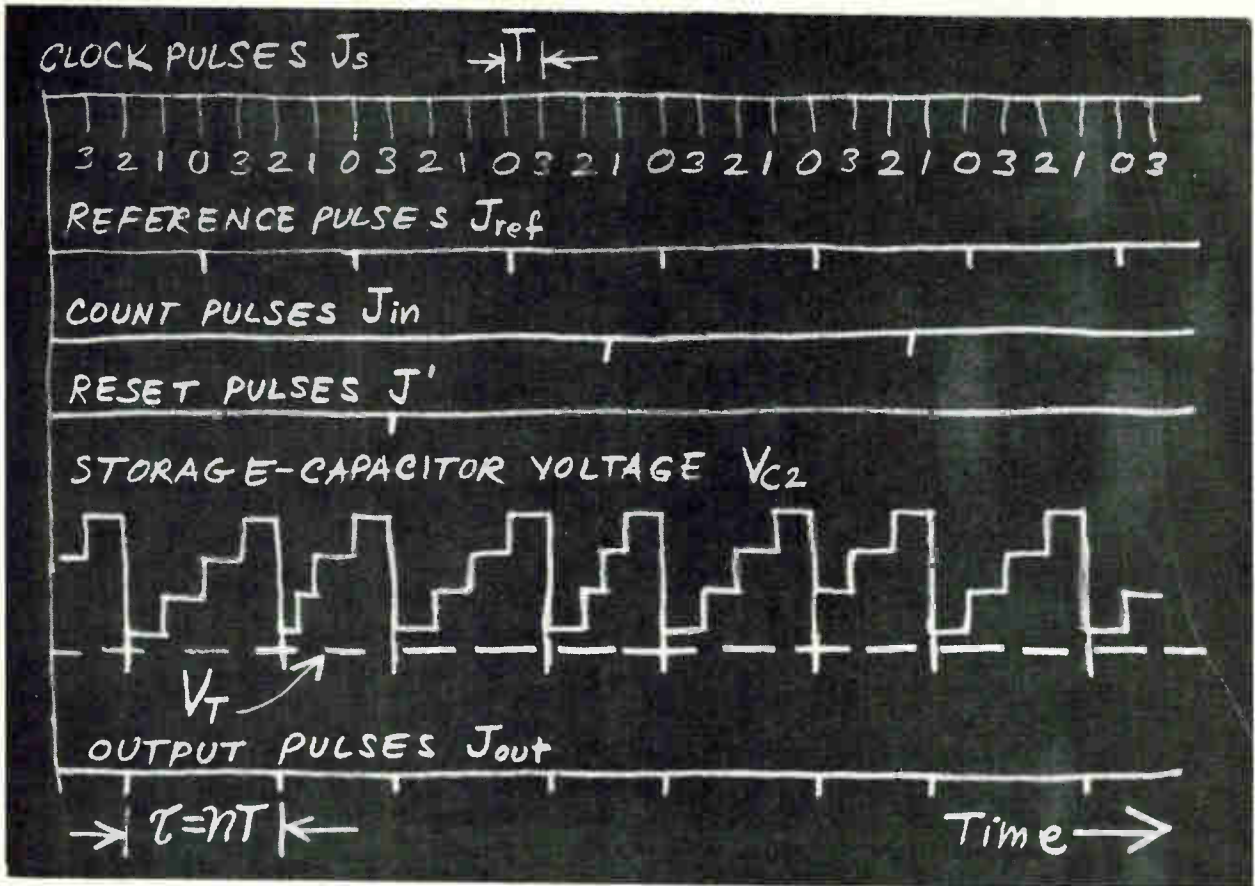 CLOCK PULSES Js
T
3 2 1 0 3 2 1 0 3 2 1 0 3 2 1 0 3 2 1 0 3 2 1 0 3 2 1 0 3
REFERENCE PULSES Jref
COUNT PULSES Jin
RESET PULSES J'
STORAGE-CAPACITOR VOLTAGE VC2
VT
OUTPUT PULSES Jout
τ=nT
Time